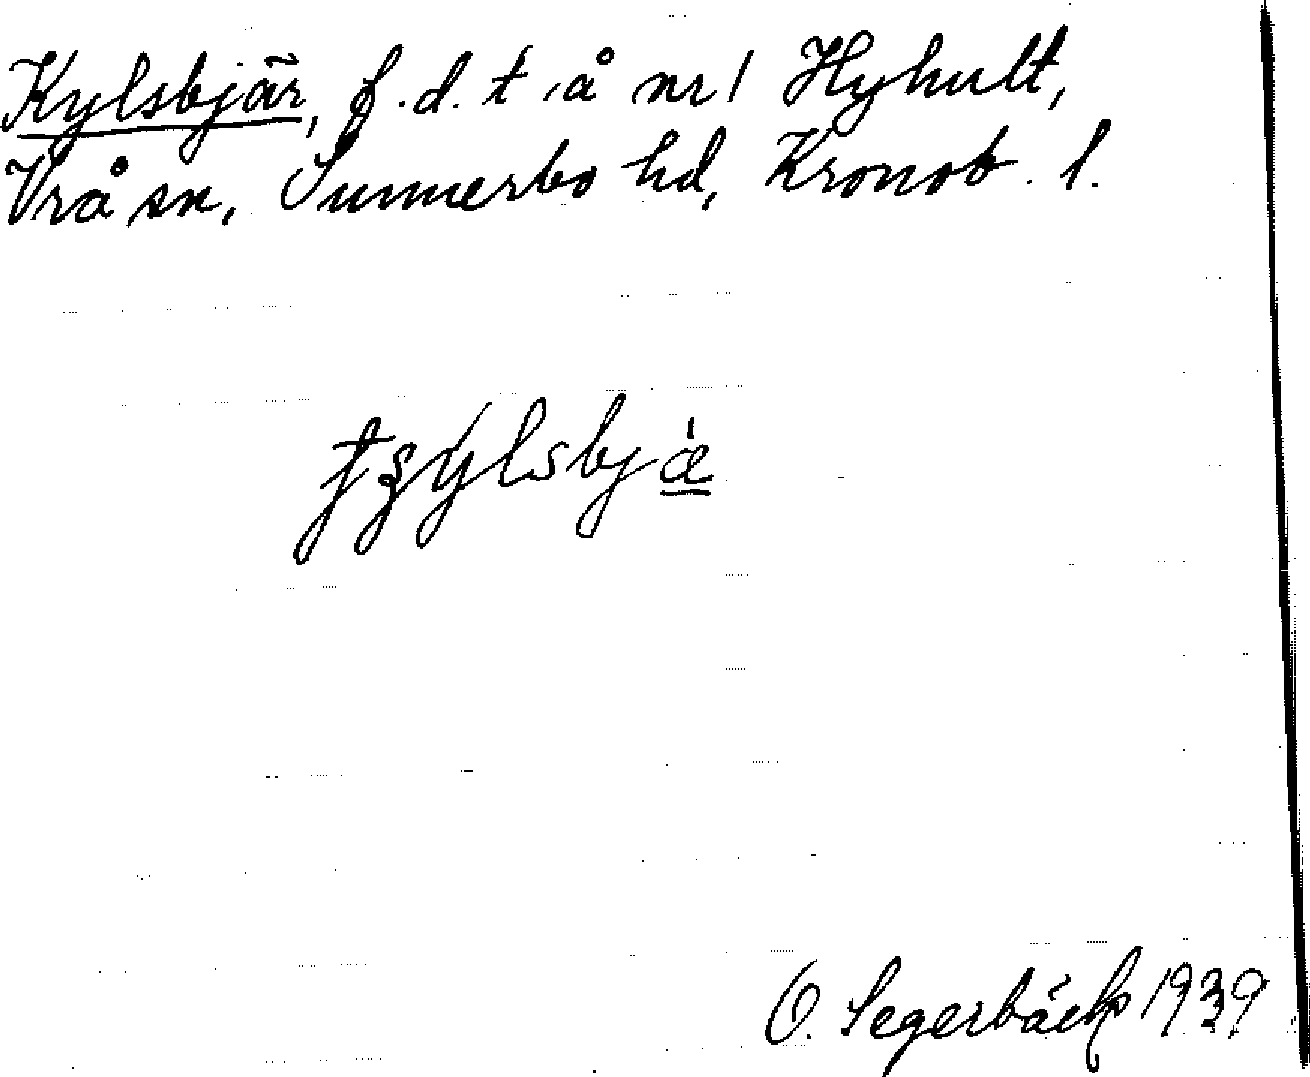 Kylsbjär, f.d.t. å nr 1 Hyhult,
Vrå sn, Sunnerbo hd, Kronob. l.
O. Segerbäck 1939